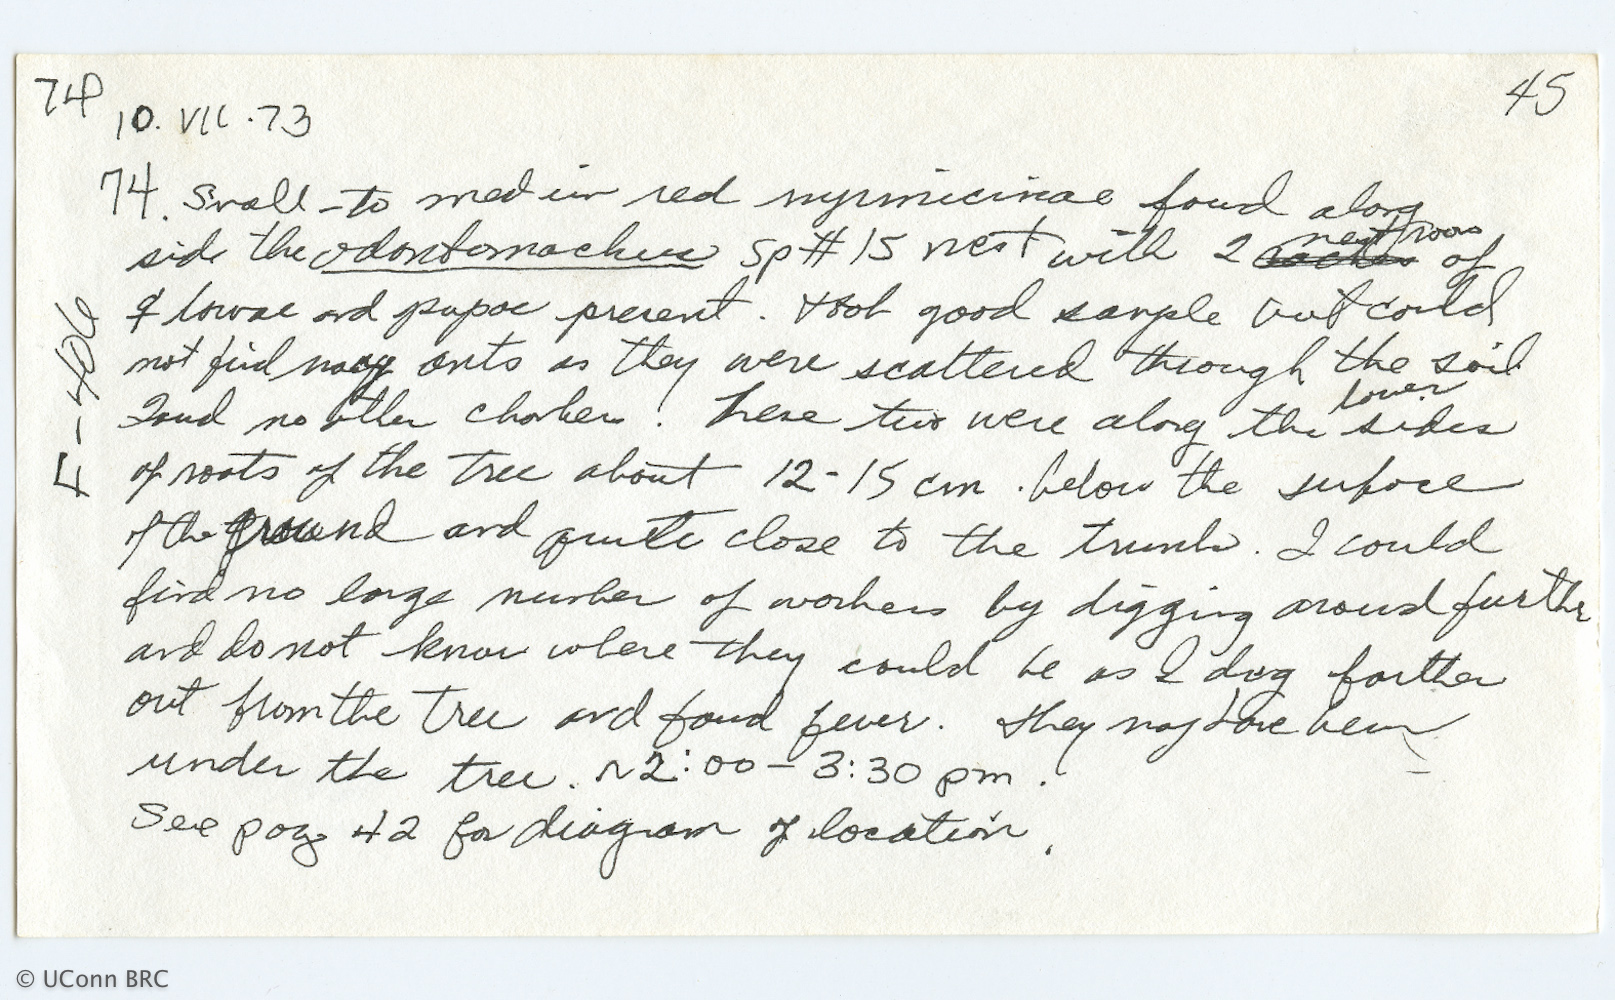 74P
45
10.VII.73
74. Small-to medium red myrmicinae found along
side the Odontomachus sp # 15 nest with 2 nest rooms of
& larvae and pupae present. took good sample but could
not find many ants as they were scattered through the soil
Found no other chambers. These two were along the lower sides
of roots of the tree about 12-15 cm. below the surface
of the ground and quite close to the trunk. I could
find no large number of workers by digging around further
and do not know where they could be as I dug farther
out from the tree and found fewer. They may have been
under the tree. ~2:00-3:30 pm.
See page 42 for diagram of location.
F-406
© UConn BRC